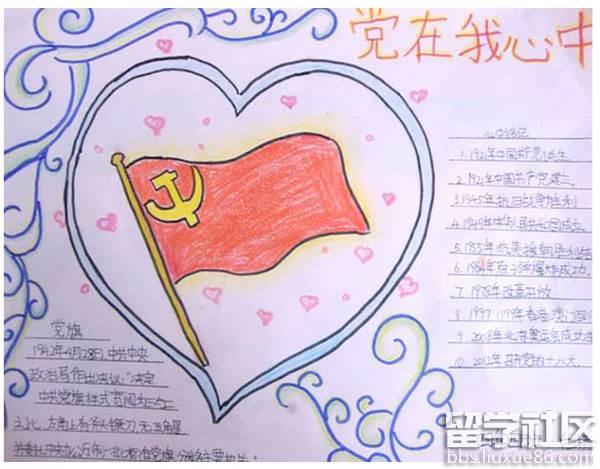 党在我心中
心中铭记
1.1921年中国共产党诞生
2.1921年中国共产党建立.
3.1945年抗日战争胜利
4.1949年中华人民共和国成立.
5.1953年抗美援朝胜利结
6.1964年原子弹爆炸成功.
7.1978年改革开放
8.1997 1999年香港澳门回归
9.2008年北京奥运会成功
10.2012年召开党的十八大.
党旗
1942年4月28日,中共中央
政治局作出决议:"决定
中共党旗样式宽阔为三与二
之比,左角上有斧头镰刀,无五角星
留学社区
bbs.liuxue86.com